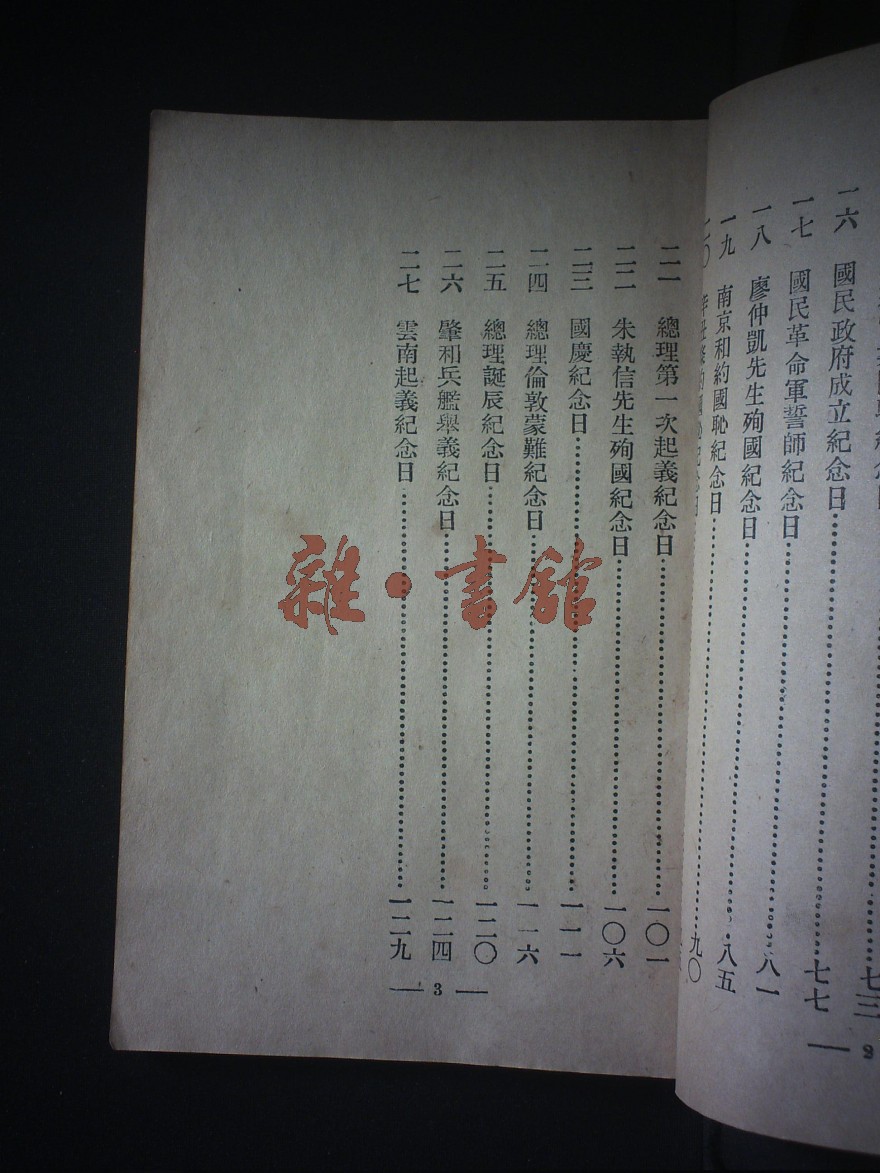 七三
一六 國民政府成立紀念日……七七
一七 國民革命軍誓師紀念日……八一
一八 廖仲凱先生殉國紀念日……八五
一九 南京和約國恥紀念日……九〇
二〇
二一 總理第一次起義紀念日……一〇一
二二 朱執信先生殉國紀念日……一〇六
二三 國慶紀念日……一一一
二四 總理倫敦蒙難紀念日……一一六
二五 總理誕辰紀念日……一二〇
二六 肇和兵艦舉義紀念日……一二四
二七 雲南起義紀念日……一二九
— 3 —
雜·書館